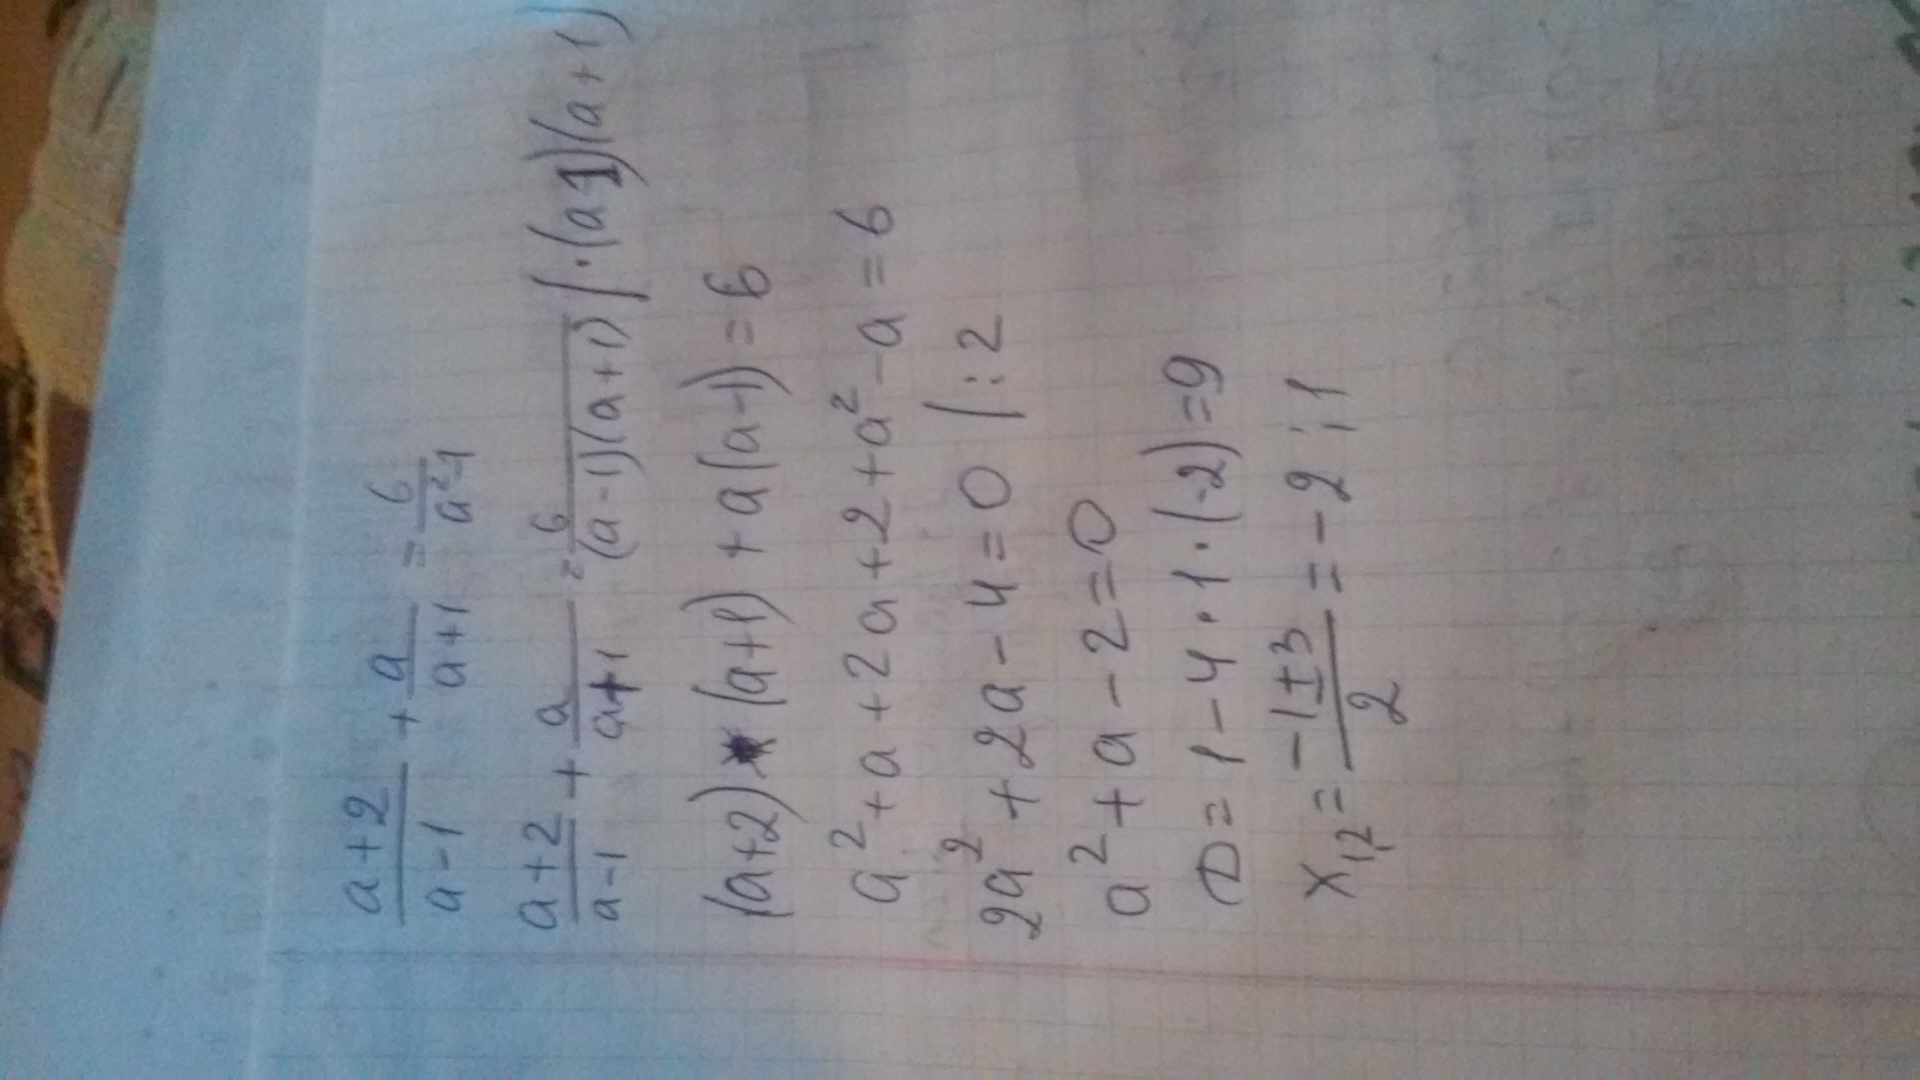 (a+2)/(a-1) + a/(a+1) = 6/(a²-1)
(a+2)/(a-1) + a/(a+1) = 6/((a-1)(a+1)) | ·(a-1)(a+1)
(a+2)(a+1) + a(a-1) = 6
a² + a + 2a + 2 + a² - a = 6
2a² + 2a - 4 = 0 | : 2
a² + a - 2 = 0
D = 1 - 4 · 1 · (-2) = 9
x₁,₂ = (-1 ± 3)/2 = -2 ; 1